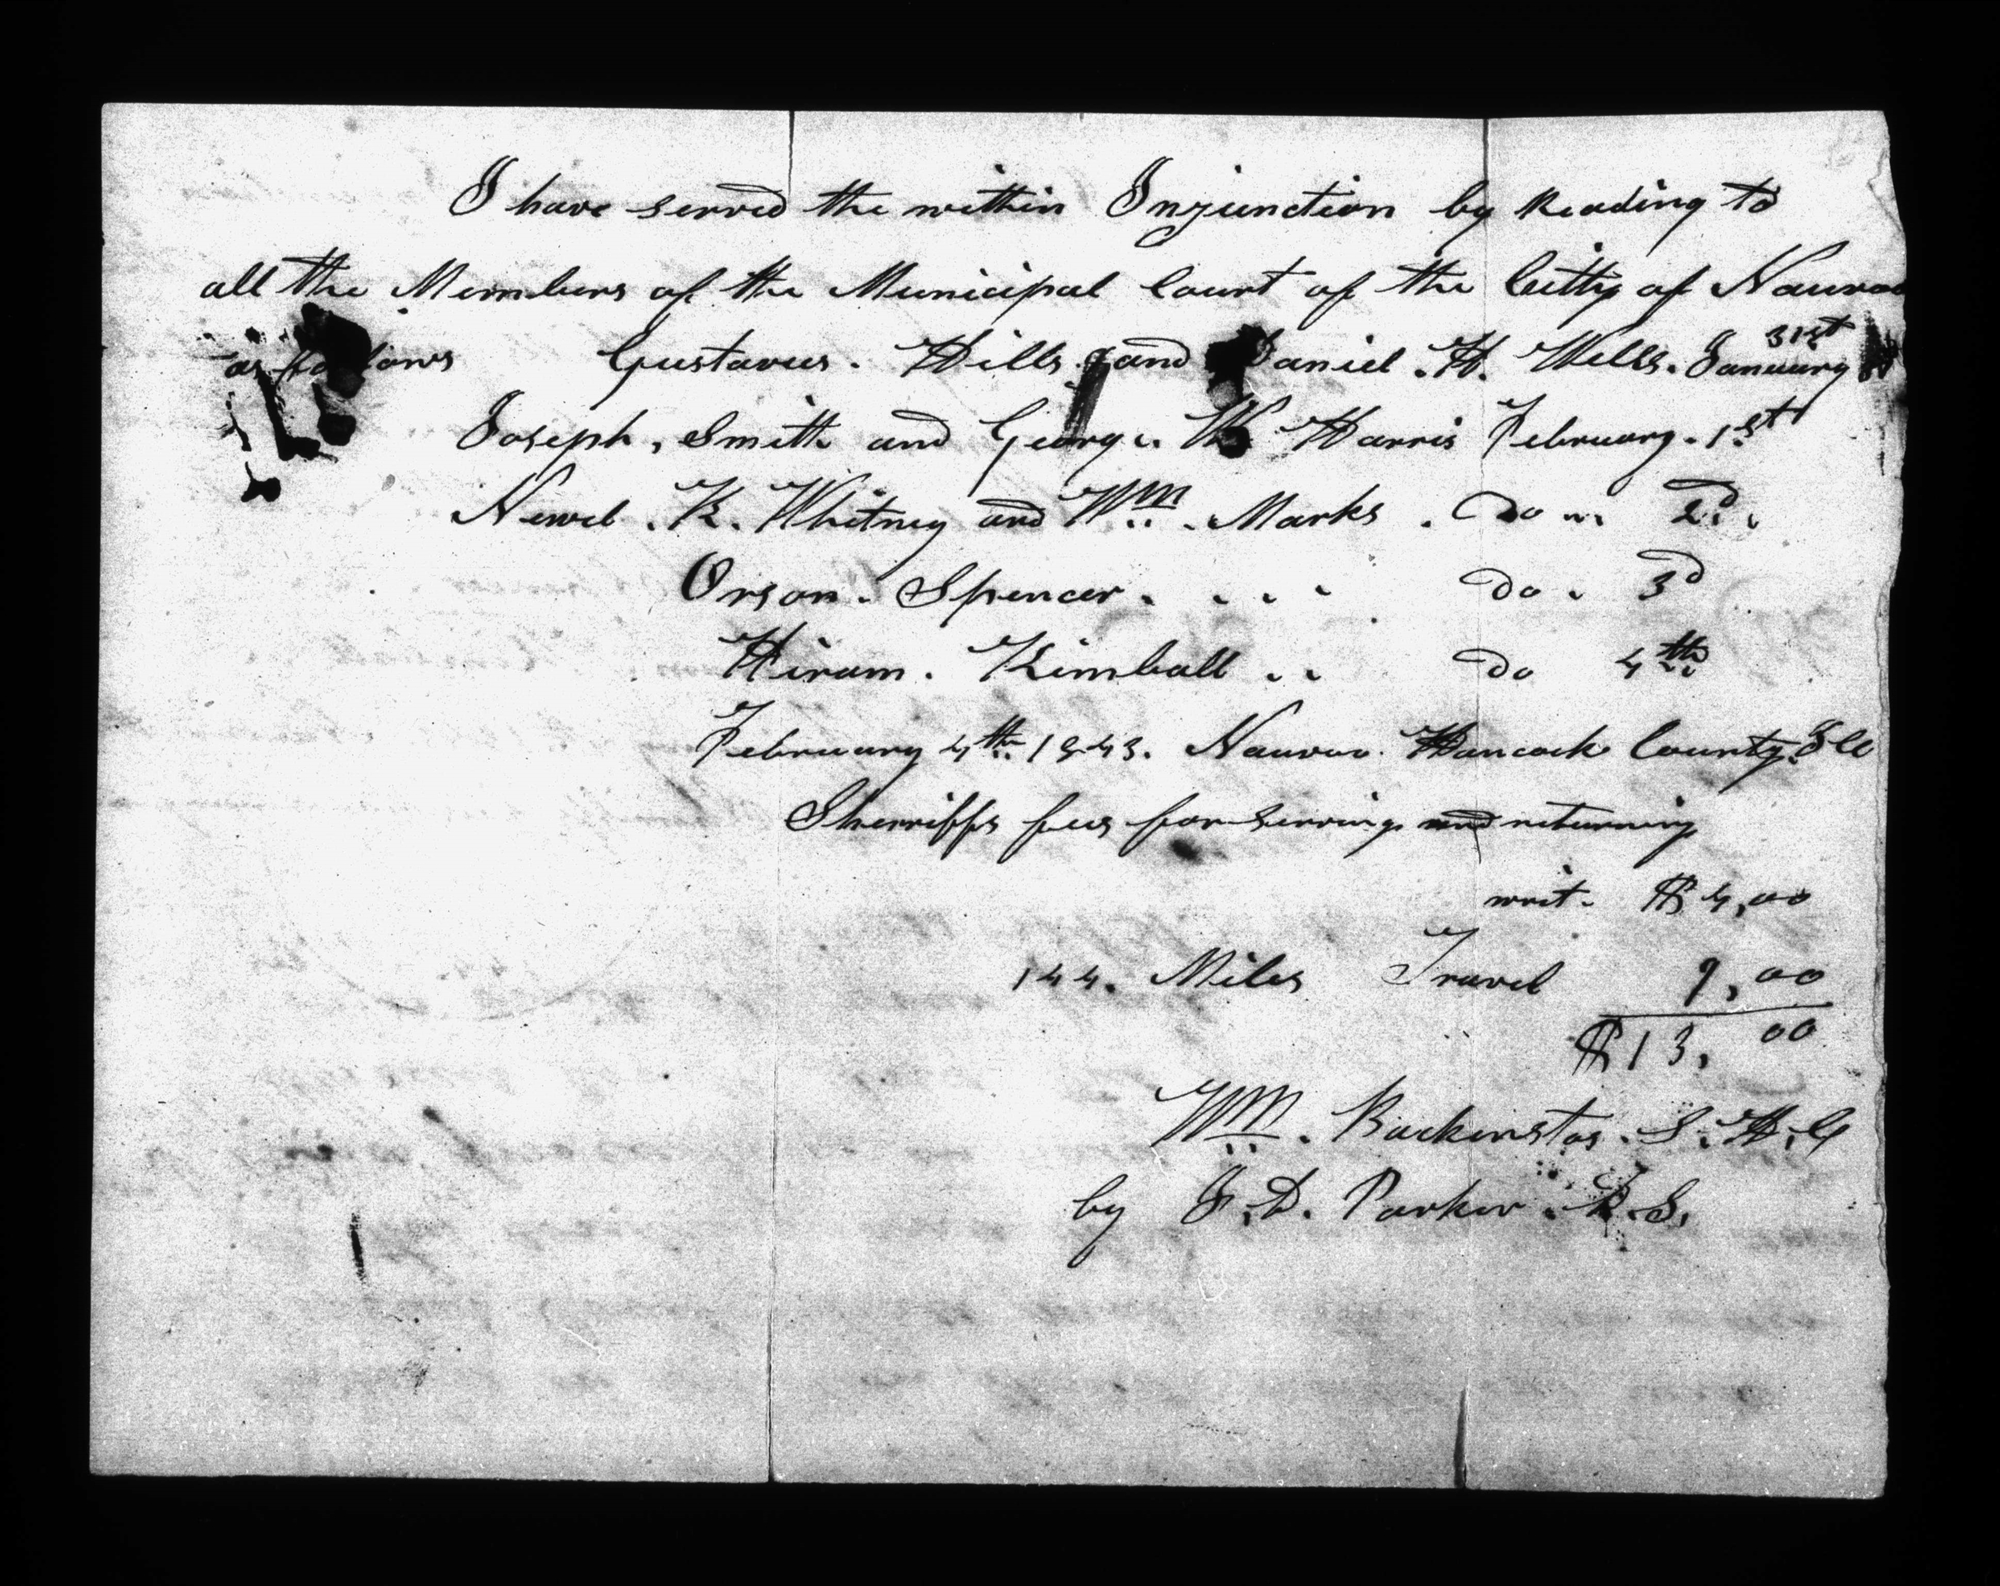 I have served the within Injunction by Reading to
all the Members of the Municipal Court of the Citty of Nauvoo
as follows Gustavus. Hills. and Daniel. H. Wells. January 31st
Joseph, Smith and George. W Harris February. 1st
Newel. K. Whitney and Wm. Marks. Do.. 2d.
Orson. Spencer. . . . Do. 3d
Hiram. Kimball .. Do 4th
February 4th 1843. Nauvoo. Hancock County. Ill
Sherriffs fees for Serving and returning
writ. $4,00
144. Miles Travel 9,00
$13,00
Wm. Backenstos. S. H. C
by J. D. Parker. D. S.